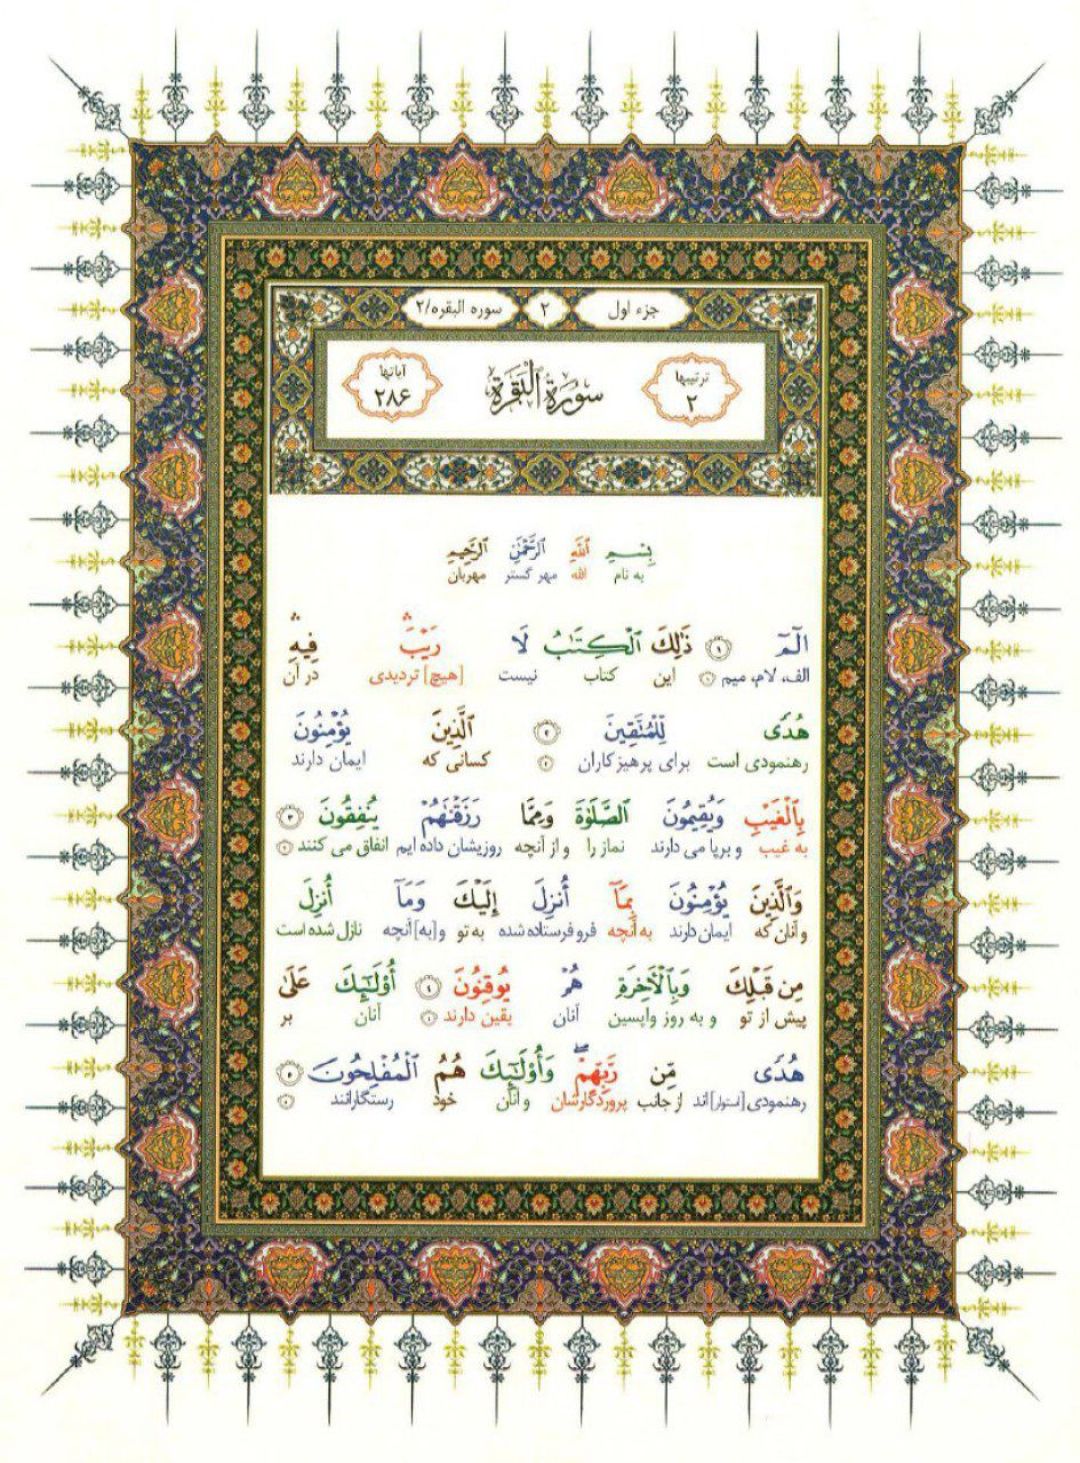 جزء اول
۲
سوره البقره/۲
ترتیبها
۲
سُورَةُ الْبَقَرَةِ
آیاتها
۲۸۶
بِسْمِ ٱللَّهِ ٱلرَّحْمَٰنِ ٱلرَّحِيمِ
به نام الله مهر گستر مهربان
الٓمٓ ۝١ ذَٰلِكَ ٱلْكِتَٰبُ لَا رَيْبَ ۛ فِيهِ ۛ
الف، لام، میم ۱ این کتاب نیست [هیچ] تردیدی در آن
هُدًى لِّلْمُتَّقِينَ ۝٢ ٱلَّذِينَ يُؤْمِنُونَ
رهنمودی است برای پرهیزکاران ۲ کسانی که ایمان دارند
بِٱلْغَيْبِ وَيُقِيمُونَ ٱلصَّلَوٰةَ وَمِمَّا رَزَقْنَٰهُمْ يُنفِقُونَ ۝٣
به غیب و برپا می دارند نماز را و از آنچه روزیشان داده ایم انفاق می کنند ۳
وَٱلَّذِينَ يُؤْمِنُونَ بِمَآ أُنزِلَ إِلَيْكَ وَمَآ أُنزِلَ
و آنان که ایمان دارند به آنچه فرو فرستاده شده به تو و [به] آنچه نازل شده است
مِن قَبْلِكَ وَبِٱلْءَاخِرَةِ هُمْ يُوقِنُونَ ۝٤ أُو۟لَٰٓئِكَ عَلَىٰ
پیش از تو و به روز واپسین آنان یقین دارند ۴ آنان بر
هُدًى مِّن رَّبِّهِمْ ۖ وَأُو۟لَٰٓئِكَ هُمُ ٱلْمُفْلِحُونَ ۝٥
رهنمودی [استوار] اند از جانب پروردگارشان و آنان خود رستگارانند ۵